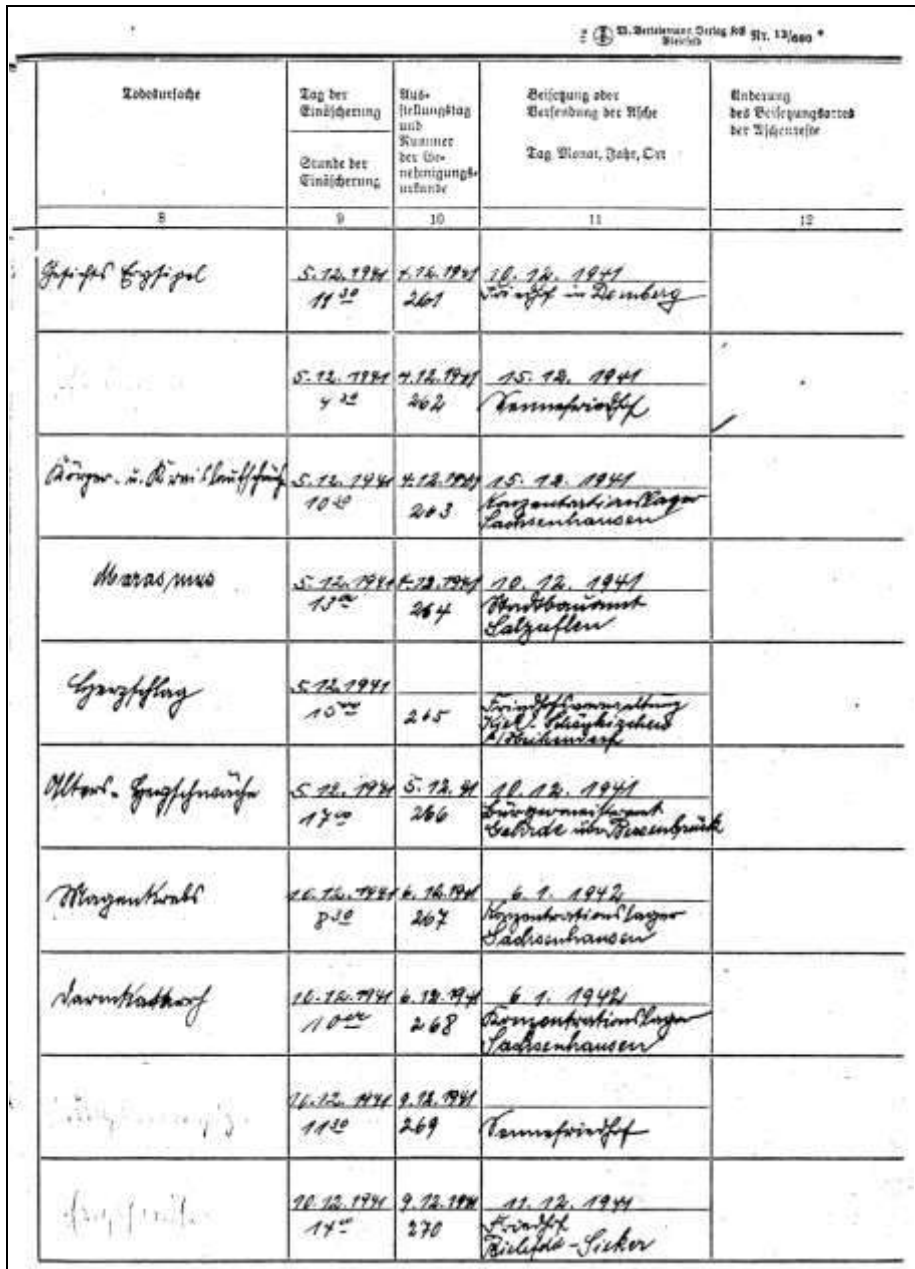 W. Bertelsmann Verlag KG Bielefeld Nr. 13/600
Todesursache
Tag der
Einäscherung
Stunde der
Einäscherung
Aus-
stellungstag
und
Nummer
der Ge-
nehmigungs-
urkunde
Beisetzung oder
Versendung der Asche
Tag, Monat, Jahr, Ort
Änderung
des Beisetzungsortes
der Aschenreste
8 9 10 11 12
Gesichts Erysipel 5.12.1941 4.12.1941 10.12.1941
11 30 261 Friedhof in Dornberg
5.12.1941 4.12.1941 15.12.1941
262 Sennefriedhof
Körper- u. Kreislaufschwäche 5.12.1941 4.12.1941 15.12.1941
10 30 263 Konzentrationslager
Sachsenhausen
Marasmus 5.12.1941 4.12.1941 10.12.1941
13 00 264 Stadtbauamt
Salzuflen
Herzschlag 5.12.1941
15 00 265 Friedhofsverwaltung
Kiel
Alters-Herzschwäche 5.12.1941 5.12.41 10.12.1941
17 00 266 Bürgermeisteramt
Gehrde über Bersenbrück
Magenkrebs 10.12.1941 6.12.1941 6.1.1942
8 30 267 Konzentrationslager
Sachsenhausen
Darmkatarrh 10.12.1941 6.12.1941 6.1.1942
10 00 268 Konzentrationslager
Sachsenhausen
10.12.1941 9.12.1941
11 30 269 Sennefriedhof
10.12.1941 9.12.1941 11.12.1941
14 00 270 Friedhof
Bielefeld-Sieker